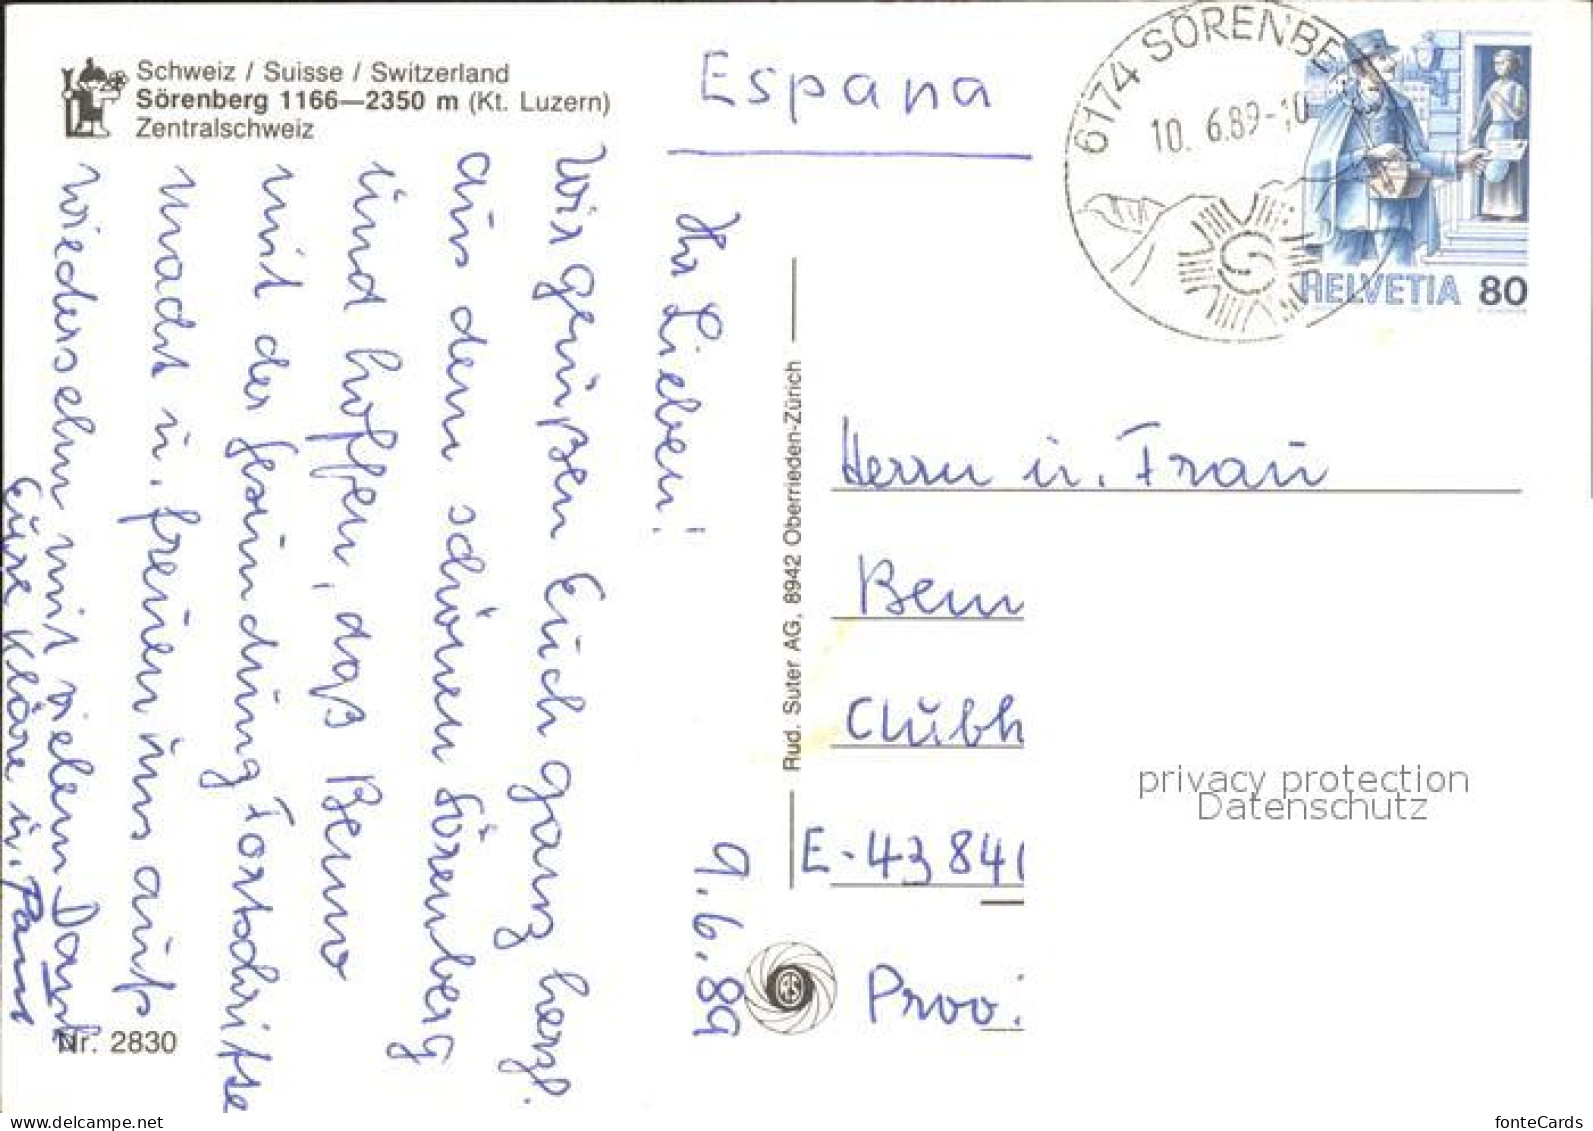 Schweiz / Suisse / Switzerland
Sörenberg 1166—2350 m (Kt. Luzern)
Zentralschweiz
Espana
6174 SÖRENBE
10. 6.89-10
HELVETIA 80
9.6.89
Ihr Lieben!
Wir grüßen Euch ganz herzl.
aus dem schönen Sörenberg
und hoffen, daß Benno
mit der Gesundung Fortschritte
macht u. freuen uns aufs
Wiedersehn mit vielem Dank
Eure Kläre u.
Rud. Suter AG, 8942 Oberrieden-Zürich
Herrn u. Frau
Benn
Clubh
E-43841
Prov.
RS
privacy protection
Datenschutz
Nr. 2830
www.delcampe.net
fonteCards